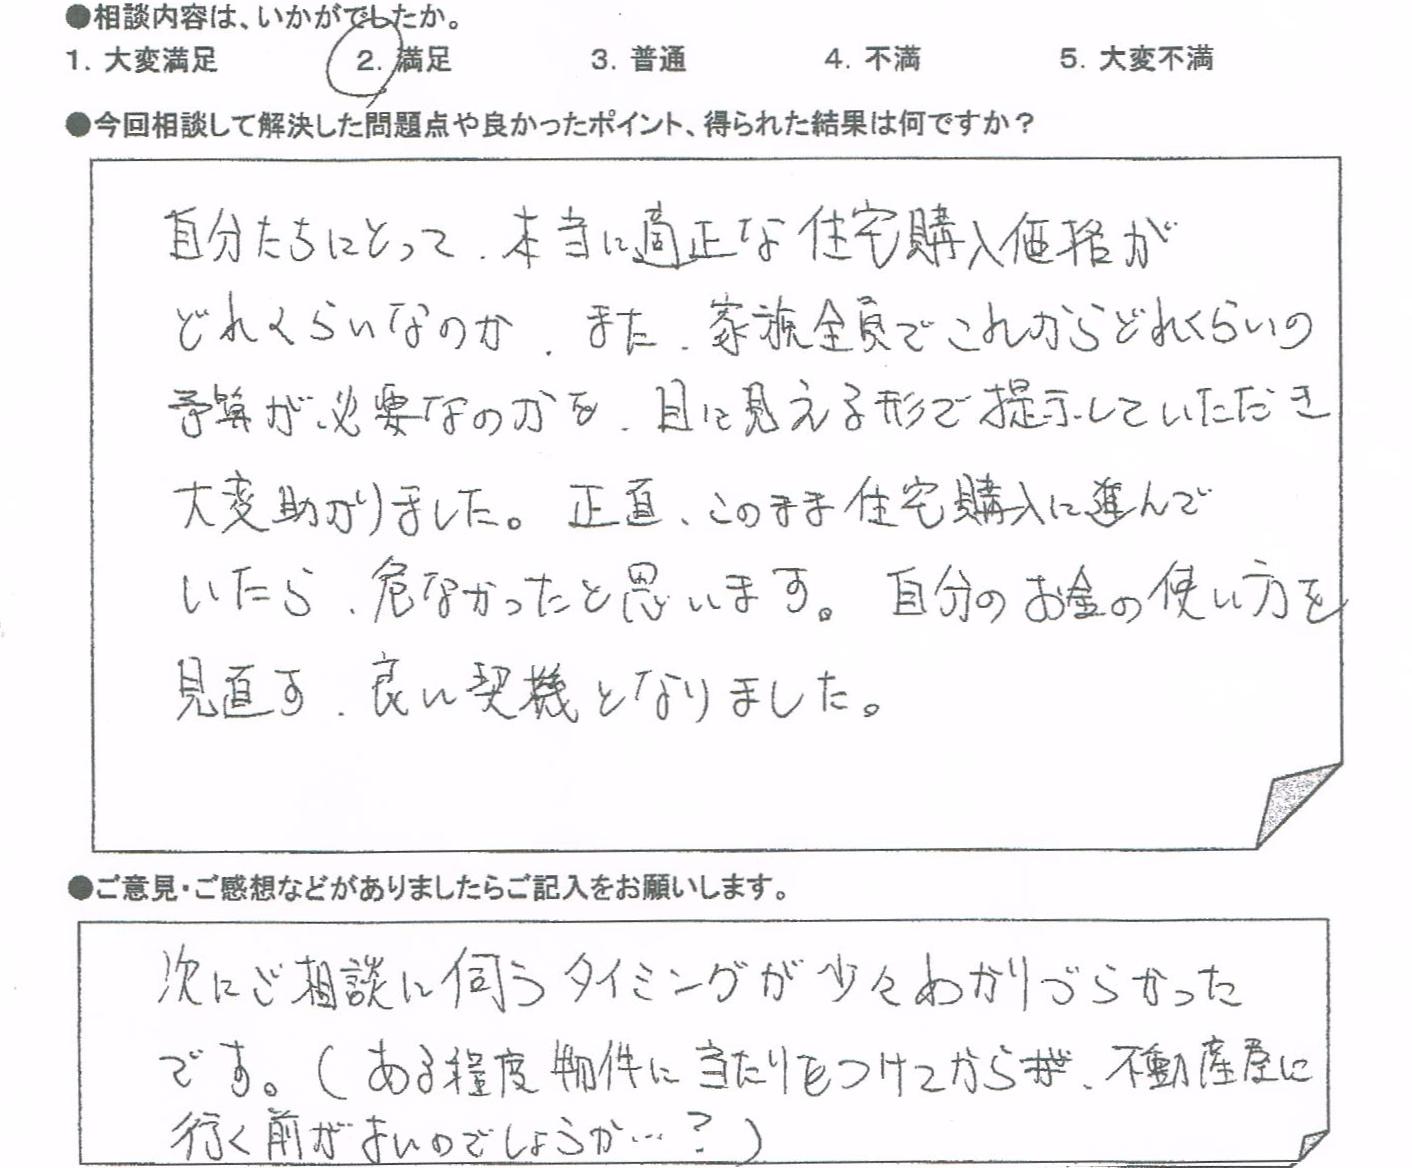 ●相談内容は、いかがでしたか。
1. 大変満足 2. 満足 3. 普通 4. 不満 5. 大変不満
●今回相談して解決した問題点や良かったポイント、得られた結果は何ですか？
自分たちにとって、本当に適正な住宅購入価格が
どれくらいなのか、また、家族全員でこれからどれくらいの
予算が必要なのかを、目に見える形で提示していただき
大変助かりました。正直、このまま住宅購入に進んで
いたら、危なかったと思います。自分のお金の使い方を
見直す、良い契機となりました。
●ご意見・ご感想などがありましたらご記入をお願いします。
次にご相談に伺うタイミングが少々わかりづらかった
です。(ある程度物件に当たりをつけてからか、不動産屋に
行く前がよいのでしょうか…?)